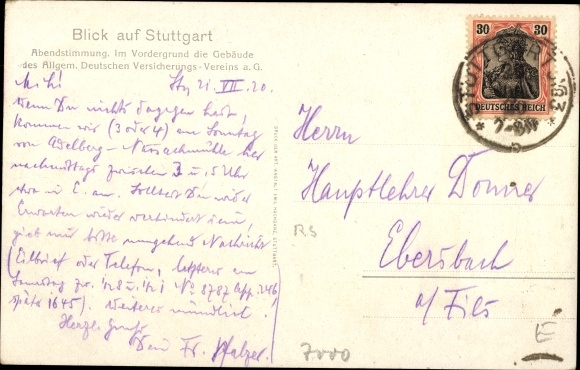 Blick auf Stuttgart
Abendstimmung. Im Vordergrund die Gebäude
des Allgem. Deutschen Versicherungs-Vereins a. G.
Stg. 21. VII. 20.
Wenn Du nichts dagegen hast,
kommen wir (3 oder 4) am Sonntag
von Adelberg - Nassachmühle her
nachmittags zwischen 3 u. 5 Uhr
etwa in E. an. Solltest Du wider
Erwarten wieder verhindert sein,
gieb mir bitte umgehend Nachricht
(Eilbrief oder Telefon, letzteres am
Samstag No 8787 App.
später 1645). Weiteres mündlich!
Herzl. Gruß
Dein Fr. Pfalzer.
30 30
DEUTSCHES REICH
STUTTGART
Herrn
Hauptlehrer Donner
Ebersbach
a/Fils
RS
7000
E